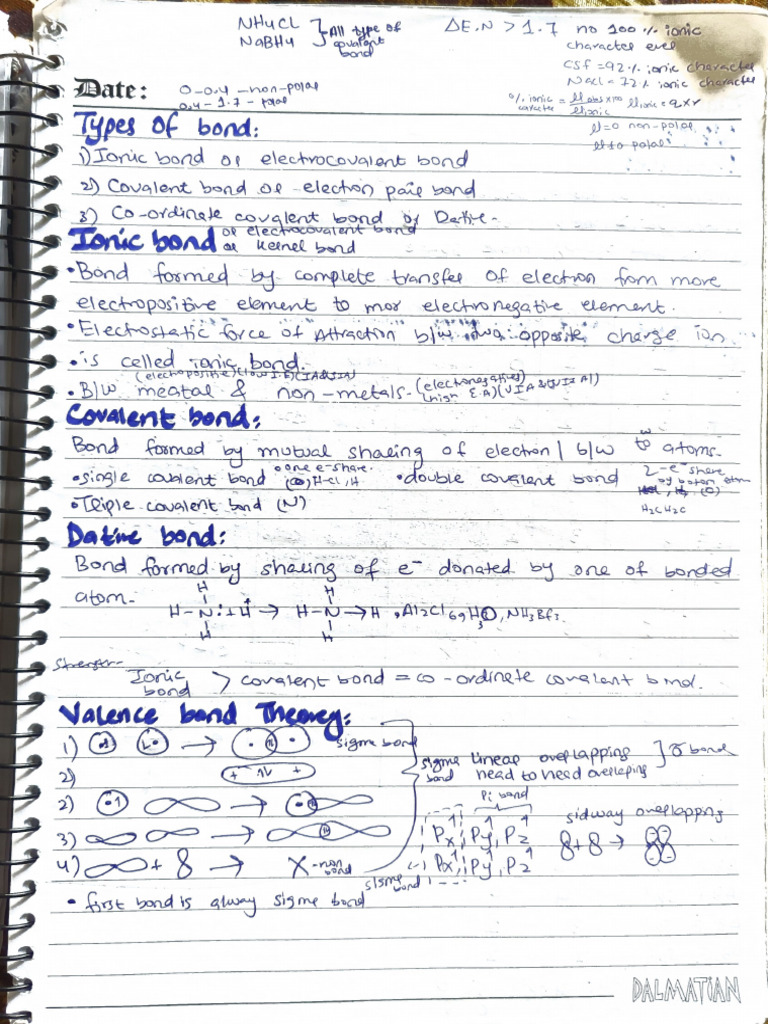 NH4Cl
NaBH4 } All type of covalent bond
ΔE.N > 1.7 no 100% ionic
character ever
CSF = 92% ionic character
NaCl = 72% ionic character
% ionic character = μobs x100 / μionic μionic = q x r
μ=0 non-polar
μ≠0 polar
Date: 0-0.4 - non-polar
0.4 - 1.7 - polar
Types of bond:
1) Ionic bond or electrocovalent bond
2) Covalent bond or electron pair bond
3) Co-ordinate covalent bond or Dative-
Ionic bond or electrocovalent bond
or kernel bond
•Bond formed by complete transfer of electron from more
electropositive element to mor electronegative element.
•Electrostatic force of Attraction b/w two opposite charge ion
•is called ionic bond.
(electropositive)(low I.E)(IA&IIA)
•B/w meatal & non-metals- (electronegative)
(high E.A)(VIA&VIIA)
Covalent bond:
Bond formed by mutual sharing of electron / b/w to atoms-
•single covalent bond •one e-share. (Cl) H-Cl, H •double covalent bond 2-e- share
by both atom
(O)
H2C H2C
•Triple covalent bond (N)
Dative bond:
Bond formed by sharing of e- donated by one of bonded
atom-
H
H-N: + H+ → H-N→H •Al2Cl6, H3O, NH3BF3.
H
Strength-
Ionic bond > covalent bond = co-ordinate covalent bind.
Valence bond Theory:
1) → sigme bond
sigme bond linear overlapping
head to head overlaping } σ bond
2) + +
2) →
Pi band
3) →
Px, Py, Pz
Px, Py, Pz
sidway overlapping
8+8 →
4) + 8 → X-non bond
sigme bond
• first bond is alway sigme bond
DALMATIAN